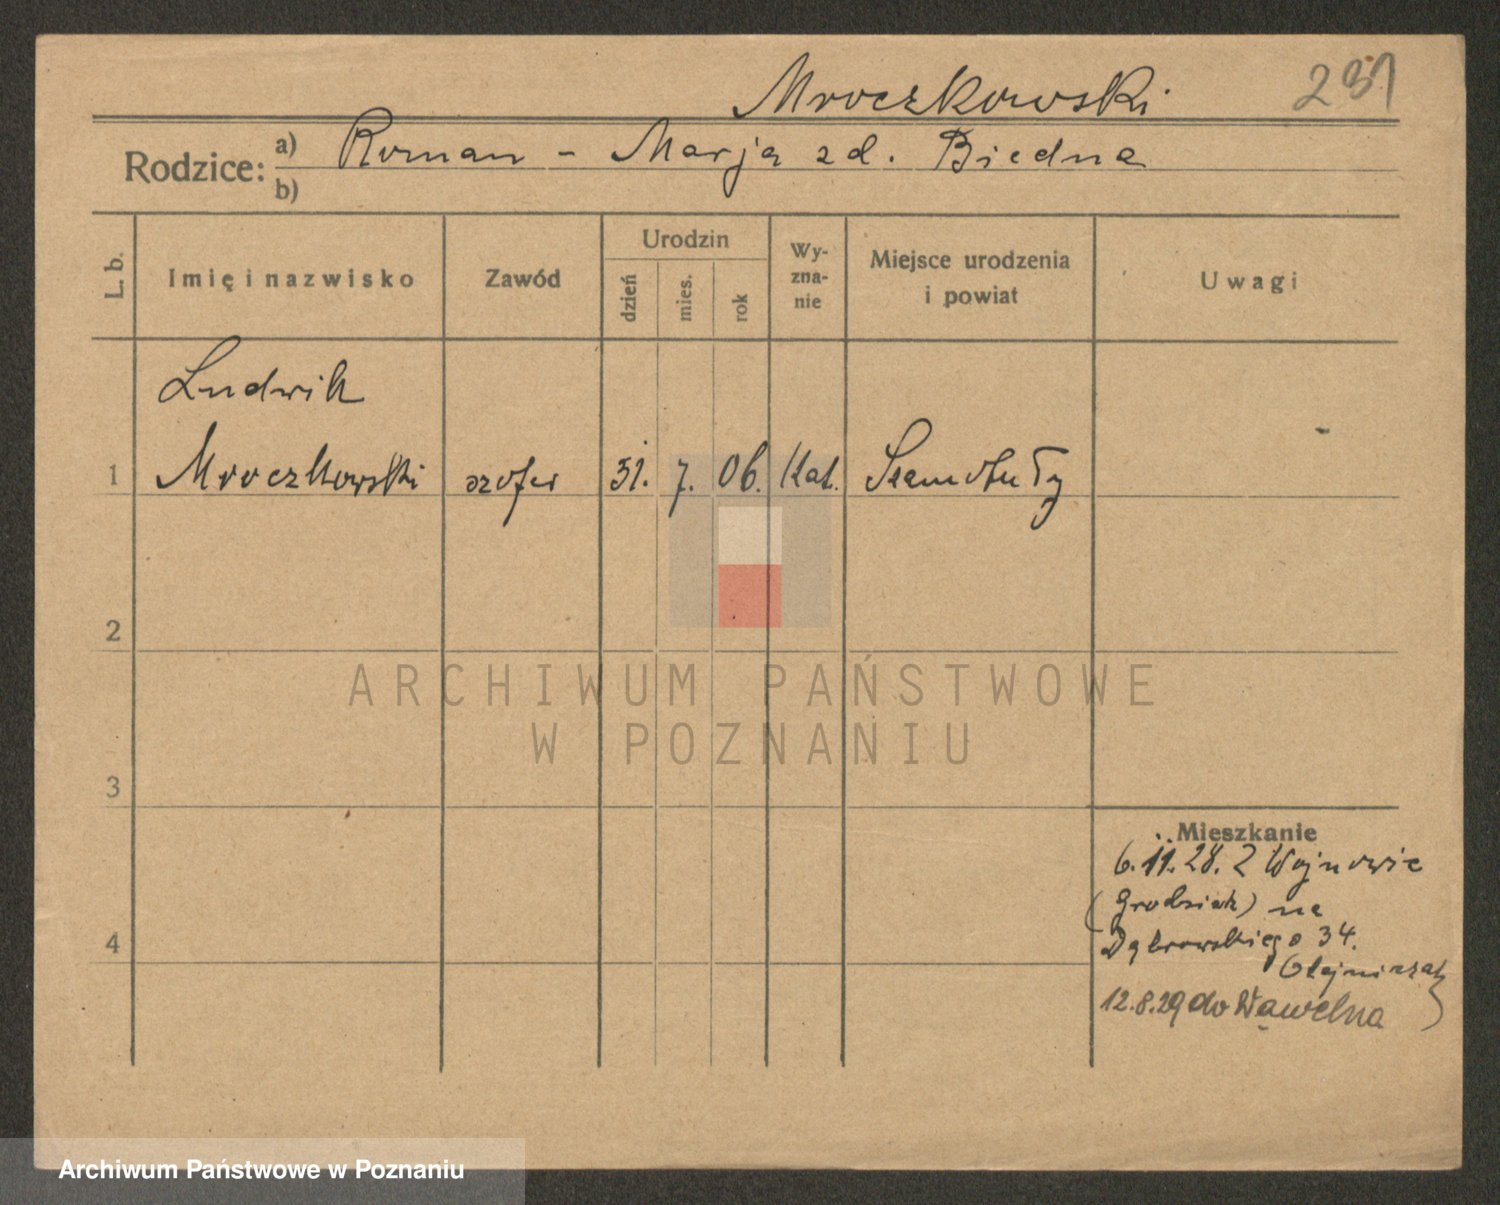 Mroczkowski
231
Rodzice:
a) Roman - Marja zd. Biedna
b)
L. b.
Imię i nazwisko
Zawód
Urodzin
dzień
mies.
rok
Wy-
zna-
nie
Miejsce urodzenia
i powiat
Uwagi
Ludwik
1 Mroczkowski szofer 31. 7. 06. Kat. Szamotuły
2
3
4
Mieszkanie
6.11.28. Z Wojnowic
(Grodzisk) na
Dąbrowskiego 34.
Olejniczak
12.8.29 do Wąwelna
ARCHIWUM PAŃSTWOWE
W POZNANIU
Archiwum Państwowe w Poznaniu